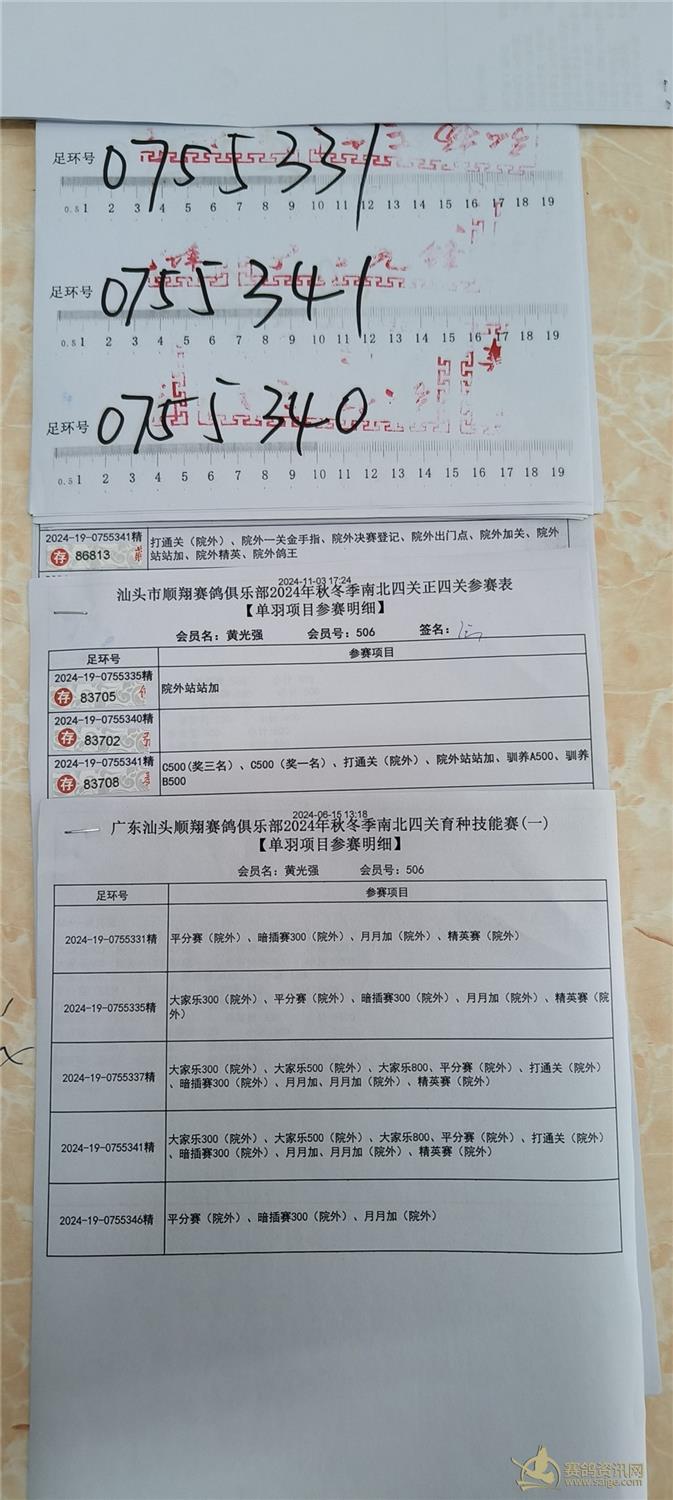 足环号 0755331
0.5 1 2 3 4 5 6 7 8 9 10 11 12 13 14 15 16 17 18 19
足环号 0755341
0.5 1 2 3 4 5 6 7 8 9 10 11 12 13 14 15 16 17 18 19
足环号 0755340
0.5 1 2 3 4 5 6 7 8 9 10 11 12 13 14 15 16 17 18 19
2024-19-0755341精 打通关（院外）、院外一关金手指、院外决赛登记、院外出门点、院外加关、院外
存 86813 站站加、院外精英、院外鸽王
2024-11-03 17:24
汕头市顺翔赛鸽俱乐部2024年秋冬季南北四关正四关参赛表
【单羽项目参赛明细】
会员名：黄光强 会员号：506 签名：
足环号 参赛项目
2024-19-0755335精
存 83705 院外站站加
2024-19-0755340精
存 83702
2024-19-0755341精 C500(奖三名)、C500（奖一名）、打通关（院外）、院外站站加、驯养A500、驯养
存 83708 B500
2024-06-15 13:18
广东汕头顺翔赛鸽俱乐部2024年秋冬季南北四关育种技能赛(一)
【单羽项目参赛明细】
会员名：黄光强 会员号：506
足环号 参赛项目
2024-19-0755331精 平分赛（院外）、暗插赛300（院外）、月月加（院外）、精英赛（院外）
2024-19-0755335精 大家乐300（院外）、平分赛（院外）、暗插赛300（院外）、月月加（院外）、精英赛（院
外）
2024-19-0755337精 大家乐300（院外）、大家乐500（院外）、大家乐800、平分赛（院外）、打通关（院外）
、暗插赛300（院外）、月月加、月月加（院外）、精英赛（院外）
2024-19-0755341精 大家乐300（院外）、大家乐500（院外）、大家乐800、平分赛（院外）、打通关（院外）
、暗插赛300（院外）、月月加、月月加（院外）、精英赛（院外）
2024-19-0755346精 平分赛（院外）、暗插赛300（院外）、月月加（院外）
赛鸽资讯网
www.saige.com